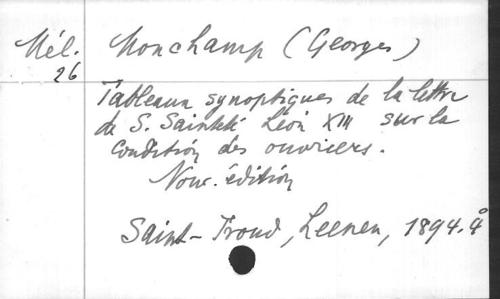 Mél. Monchamp (Georges)
26
Tableaux synoptiques de la lettre
de S. Sainteté Léon XIII sur la
condition des ouvriers.
Nouv. édition
Saint-Trond, Leenen, 1894. 4°